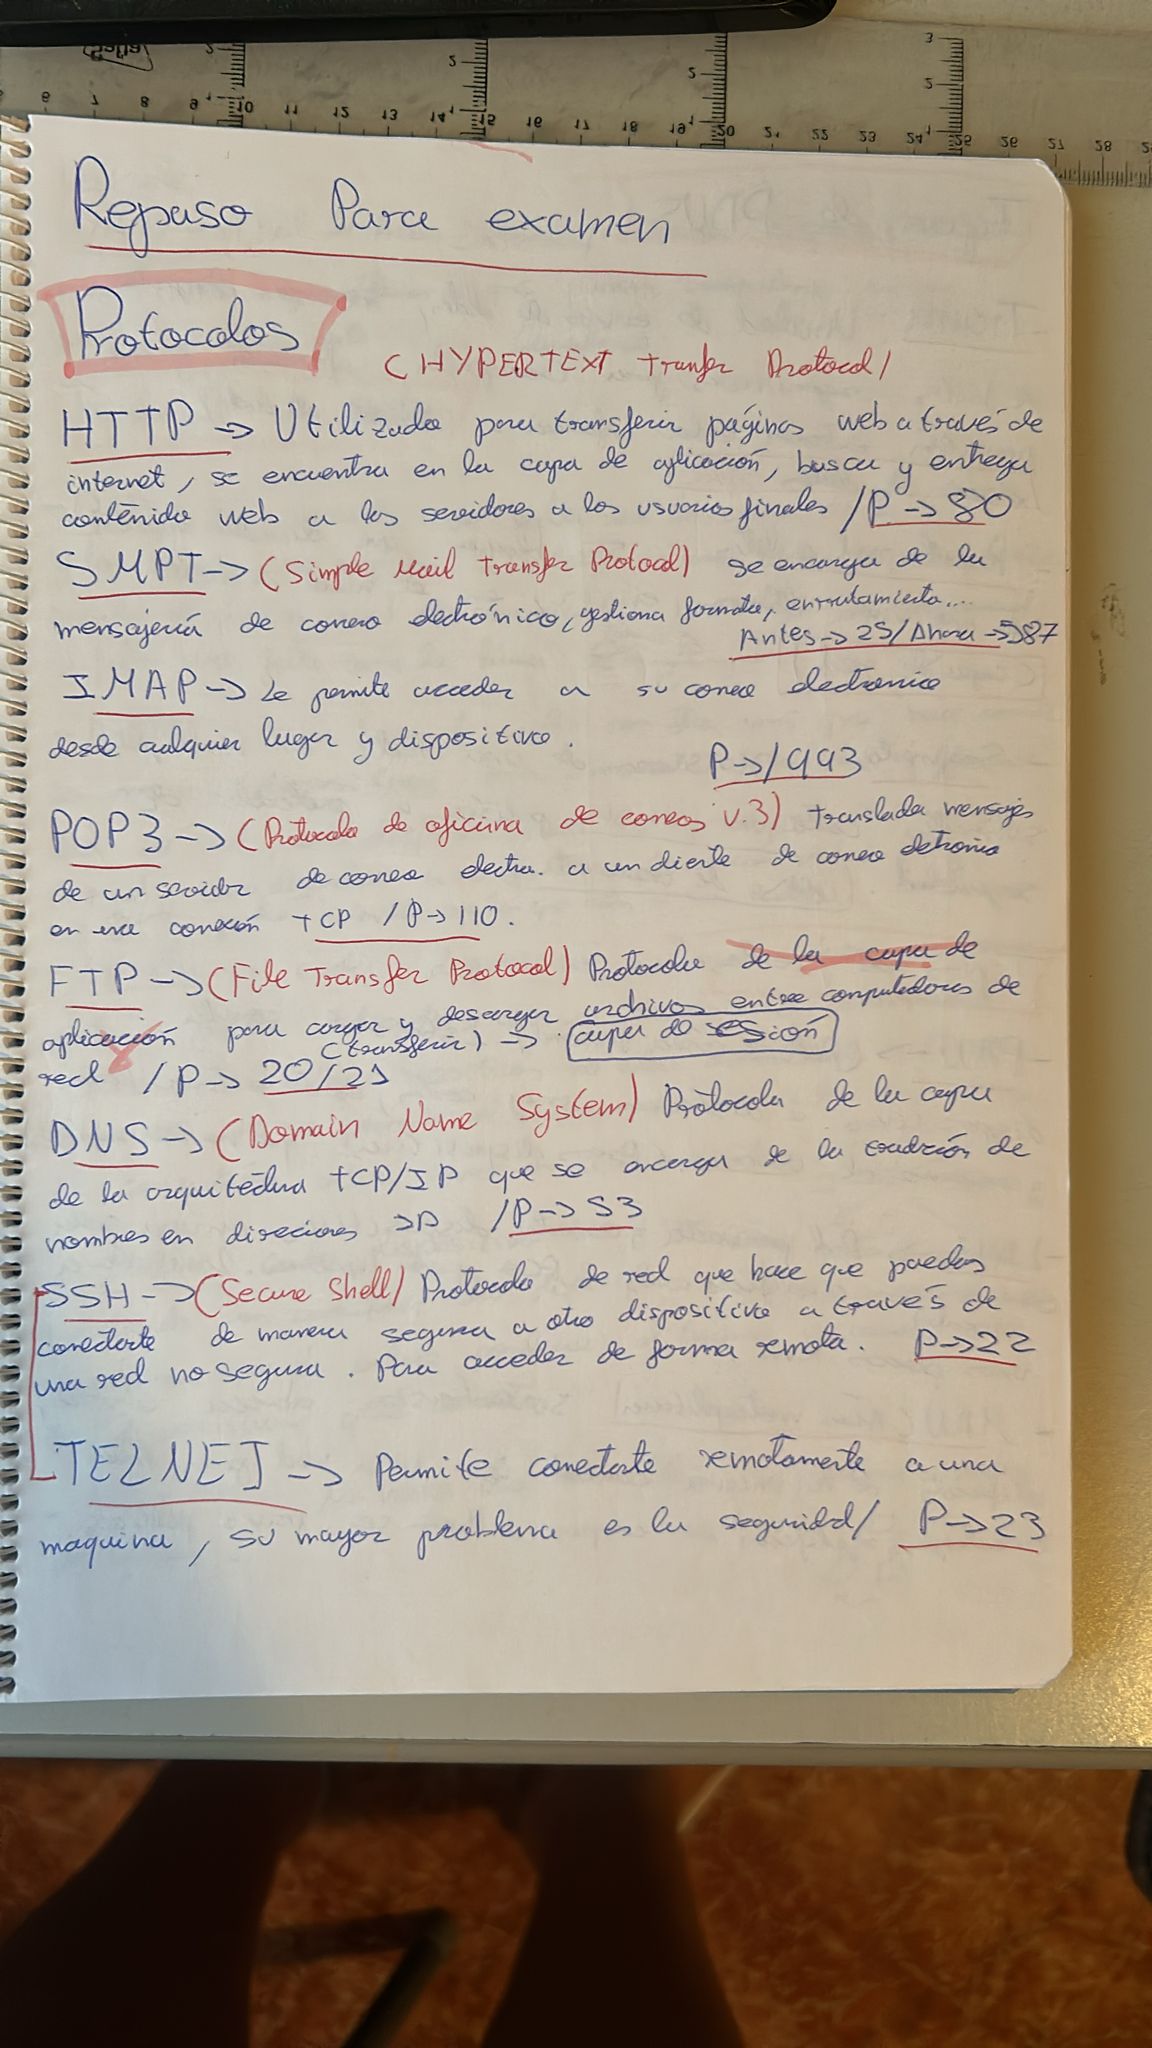 Repaso Para examen
Protocolos
(HYPERTEXT Tranfer Protocol)
HTTP -> Utilizado para transferir páginas web a través de
internet, se encuentra en la capa de aplicación, busca y entrega
contenido web a los servidores a los usuarios finales /P -> 80
SMPT -> (Simple Mail Transfer Protocol) se encarga de la
mensajería de correo electrónico, gestiona formato, enrutamiento...
Antes -> 25/Ahora -> 587
IMAP -> Le permite acceder a su correo electronico
desde cualquier lugar y dispositivo.
P -> /993
POP3 -> (Protocolo de oficina de correos v.3) translada mensajes
de un servidor de correo electro. a un cliente de correo
en una conexión TCP /P -> 110.
FTP -> (File Transfer Protocol) Protocolo de la capa de
aplicación para cargar y descargar archivos entre computadores de
(transferir) -> capa de sesión
red /P -> 20/21
DNS -> (Domain Name System) Protocolo de la capa
de la arquitectura TCP/IP que se encarga de la de
nombres en direciones IP /P -> 53
SSH -> (Secure Shell) Protocolo de red que hace que puedas
conectarte de manera segura a otro dispositivo a través de
una red no segura. Para acceder de forma remota. P -> 22
TELNET -> Permite conectarte remotamente a una
maquina, su mayor problema es la seguridad/ P -> 23